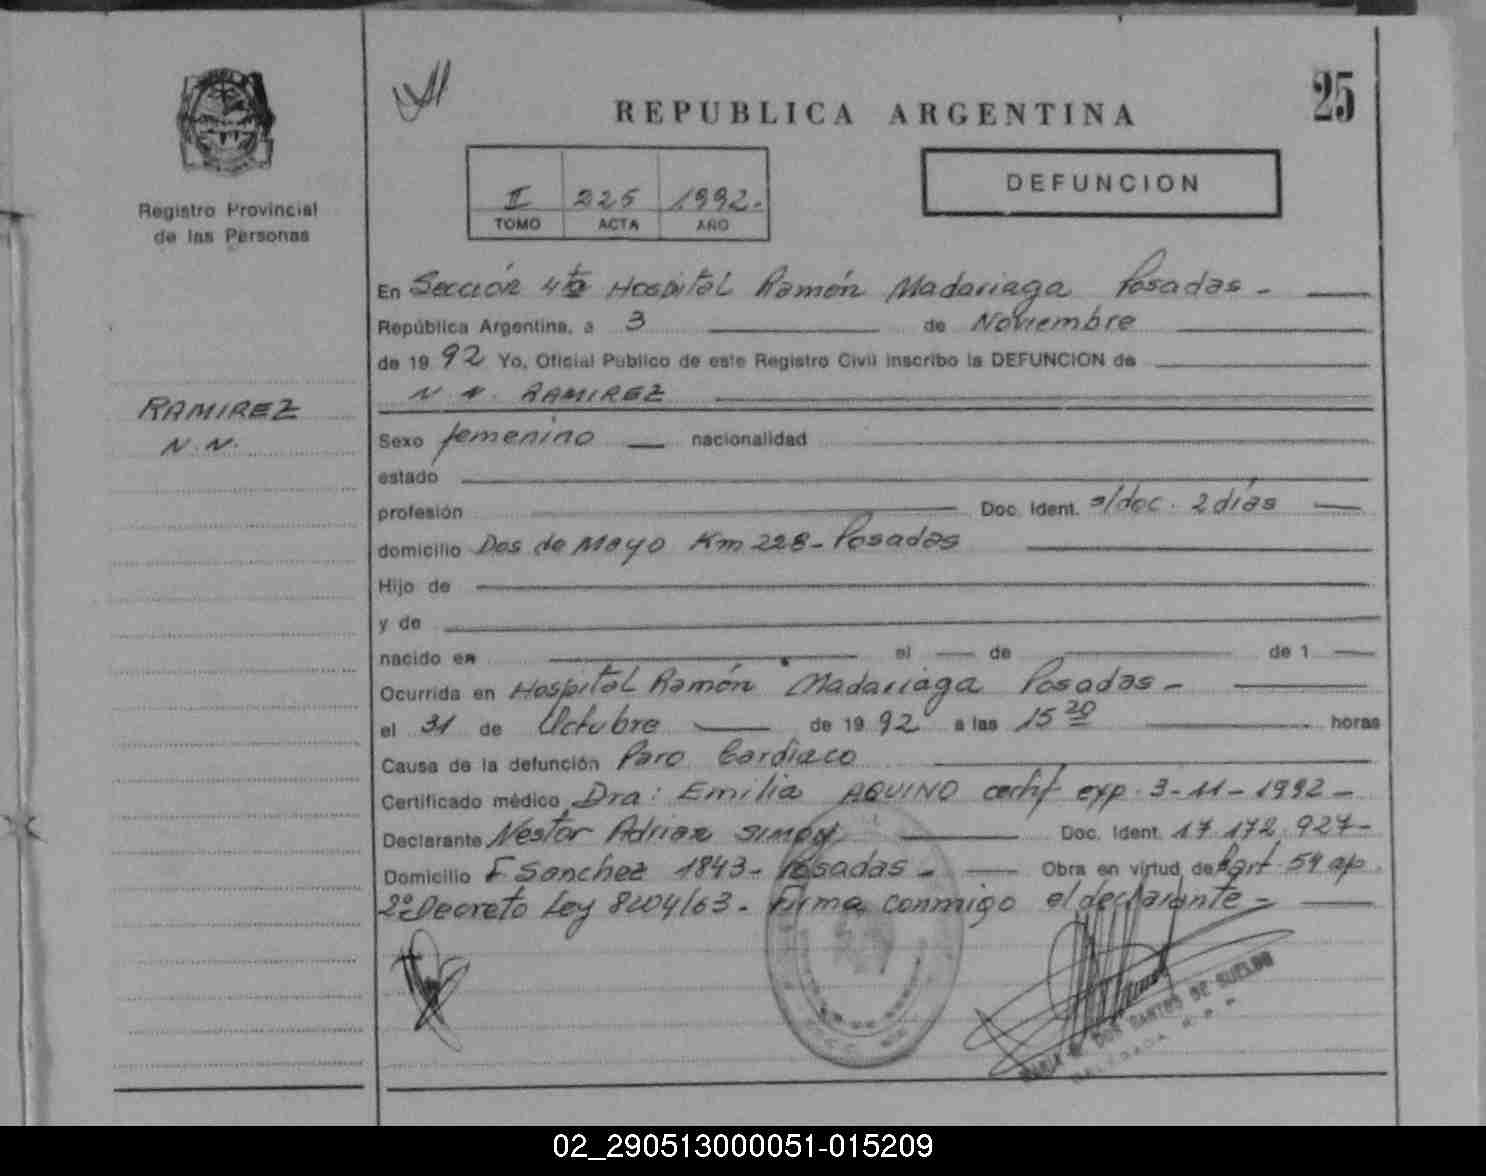 25
REPUBLICA ARGENTINA
DEFUNCION
II 225 1992.-
TOMO ACTA AÑO
Registro Provincial
de las Personas
RAMIREZ
N.N.
En Sección 4ta Hospital Ramón Madariaga Posadas -
República Argentina, a 3 de Noviembre
de 19 92 Yo, Oficial Publico de este Registro Civil inscribo la DEFUNCION de
N. N. RAMIREZ
Sexo femenino nacionalidad
estado
profesión Doc. Ident. s/doc. 2 días
domicilio Dos de Mayo Km 228 - Posadas
Hijo de
y de
nacido en el de de 1
Ocurrida en Hospital Ramón Madariaga Posadas -
el 31 de Octubre de 19 92 a las 15 20 horas
Causa de la defunción Paro Cardíaco
Certificado médico Dra: Emilia AQUINO certif exp. 3-11-1992 -
Declarante Nestor Adrian SIMON Doc. Ident. 17.172.927-
Domicilio F Sanchez 1843 - Posadas - Obra en virtud de art 59 ap.
2º Decreto Ley 8204/63. Firma conmigo el declarante -
DOS SANTOS DE SUELDO
02_290513000051-015209